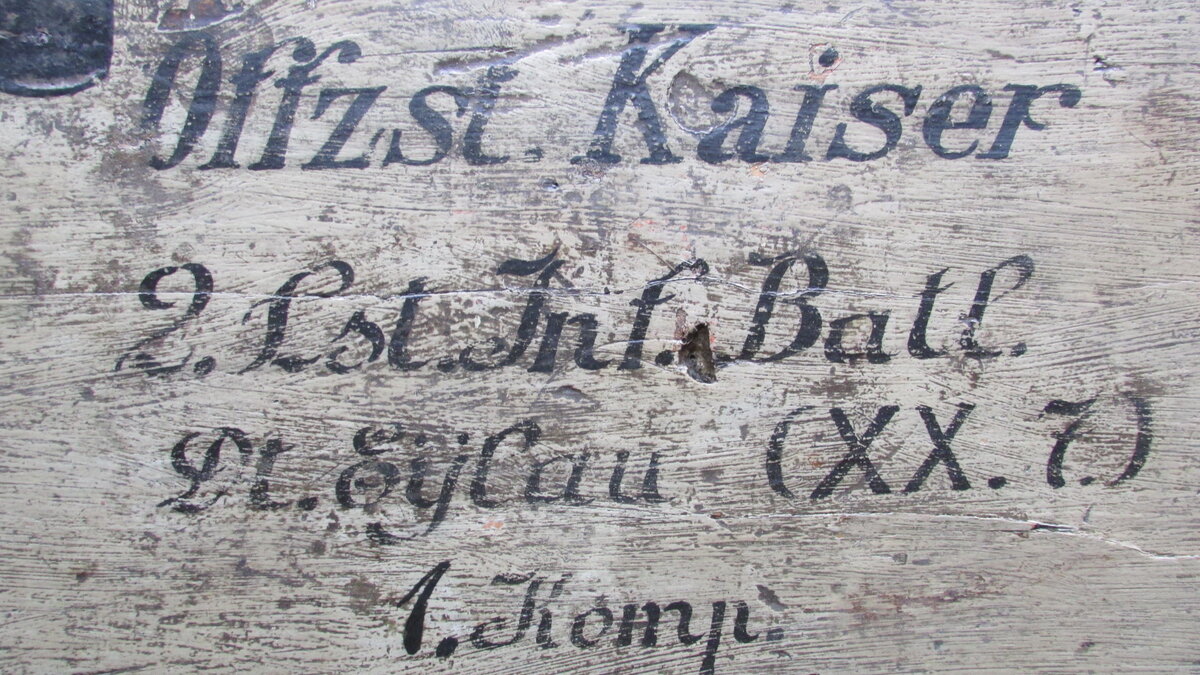 Offzst. Kaiser
2. Lst. Inf. Batl.
Dt. Eylau (XX. 7.)
1. Komp.